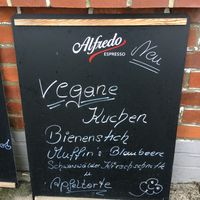 Alfredo
ESPRESSO
Neu
Vegane
Kuchen
Bienenstich
Muffin's Blaubeere
Schwarzwälder Kirschschnitte
u
Apfeltorte